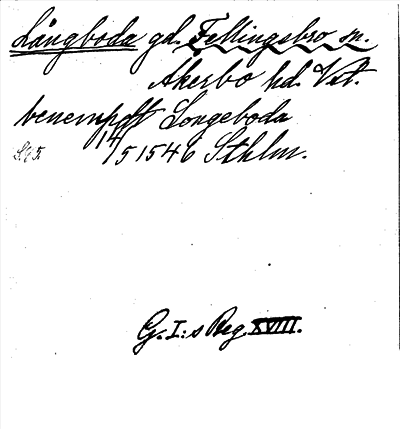 Långboda gd. Fellingsbro sn.
Åkerbo hd. Vstl.
benempdt Longeboda
14/5 1546 Sthlm.
G. I:s Reg. XVIII.